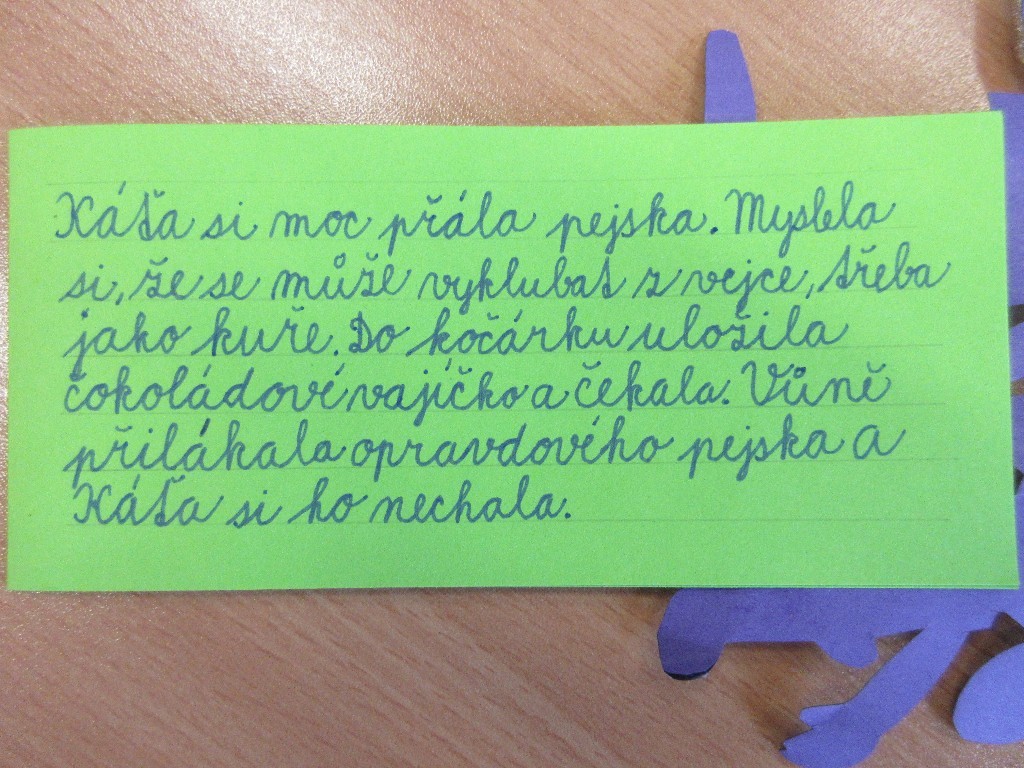 Káťa si moc přála pejska. Myslela
si, že se může vyklubat z vejce, třeba
jako kuře. Do kočárku uložila
čokoládové vajíčko a čekala. Vůně
přilákala opravdového pejska a
Káťa si ho nechala.